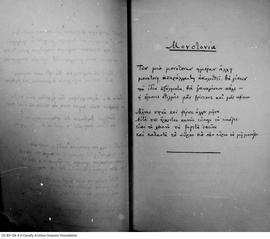 Μονοτονία
Την μιὰ μονότονην ἡμέραν ἄλλη
μονότονη, ἀπαράλλακτη ἀκολουθεῖ. Θὰ γίνουν
τὰ ἴδια πράγματα, θὰ ξαναγίνουν πάλι —
ἡ ὅμοιες στιγμὲς μᾶς βρίσκουνε καὶ μᾶς ἀφίνουν.
Μῆνας περνᾶ καὶ φέρνει ἄλλον μῆνα.
Αὐτὰ ποὺ ἔρχονται κανεὶς εὔκολα τὰ εἰκάζει·
εἶναι τὰ χθεσινὰ τὰ βαρετὰ ἐκεῖνα.
Καὶ καταντᾶ τὸ αὔριο πιὰ σὰν αὔριο νὰ μὴ μοιάζει.
CC-BY-SA 4.0 Cavafy Archive Onassis Foundation